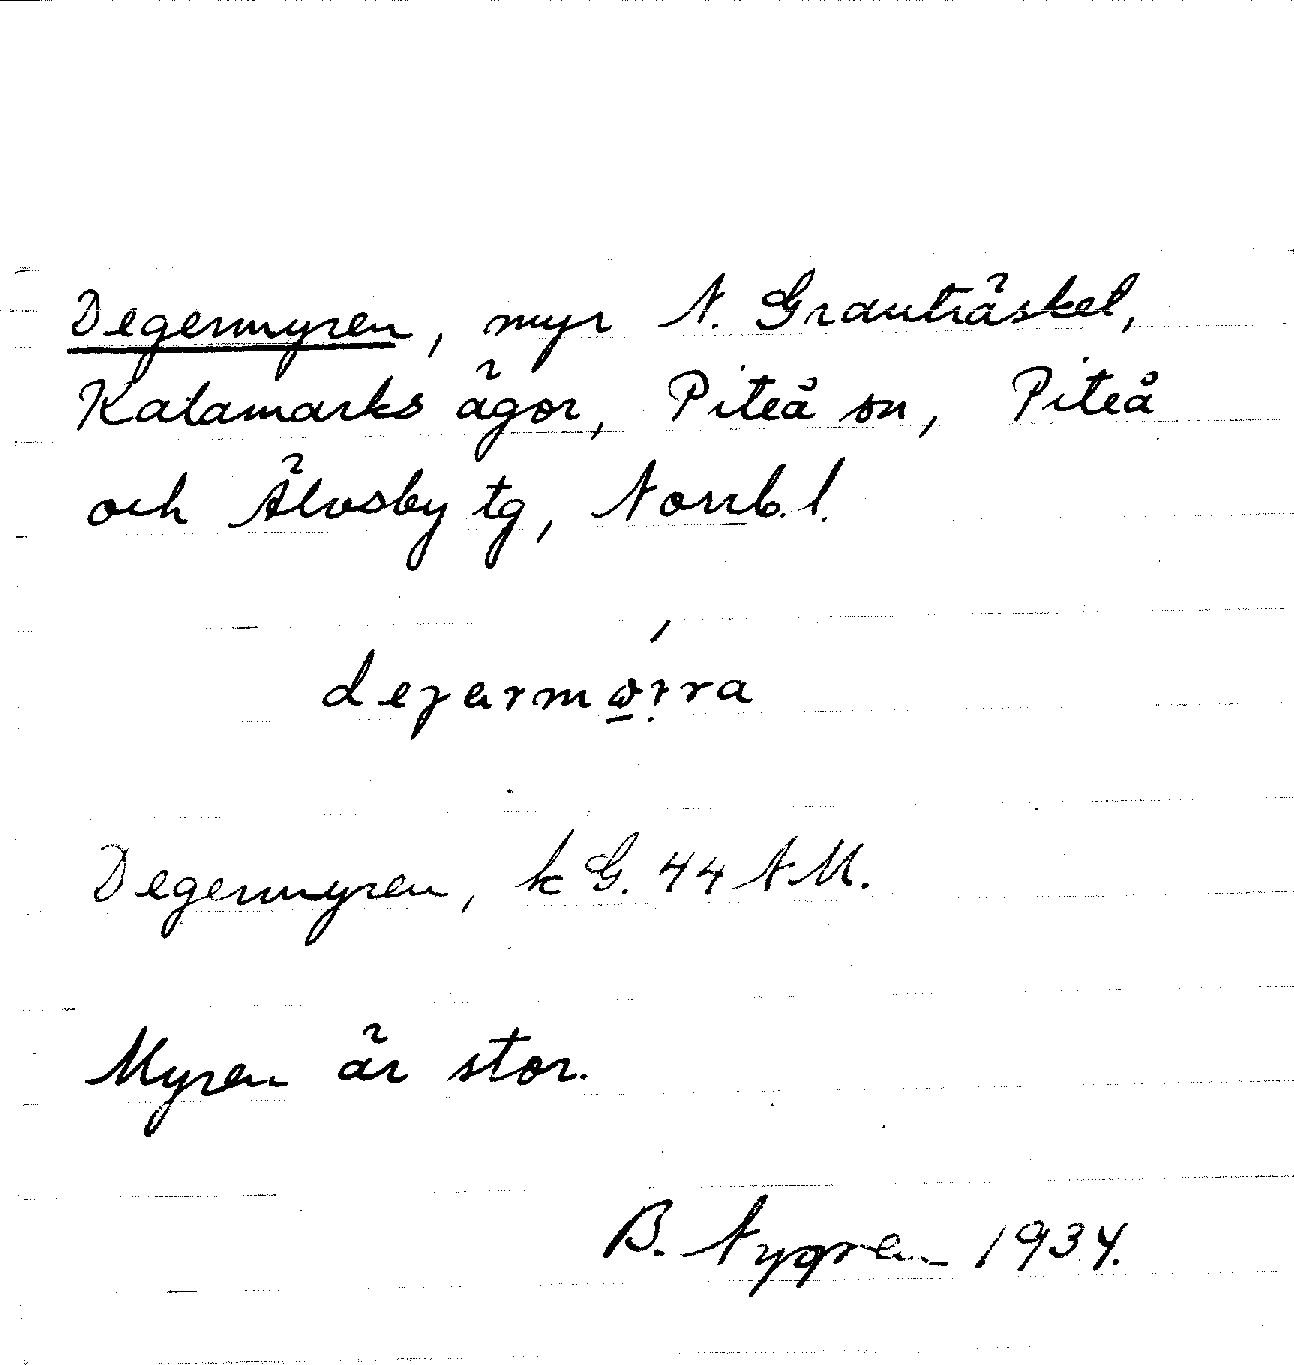 Degermyren, myr N. Granträsket,
Kalamarks ägor, Piteå sn, Piteå
och Älvsby tg, Norrb. l.
Degermyren, k G. 44 NM.
Myren är stor.
B. Nygren 1934.